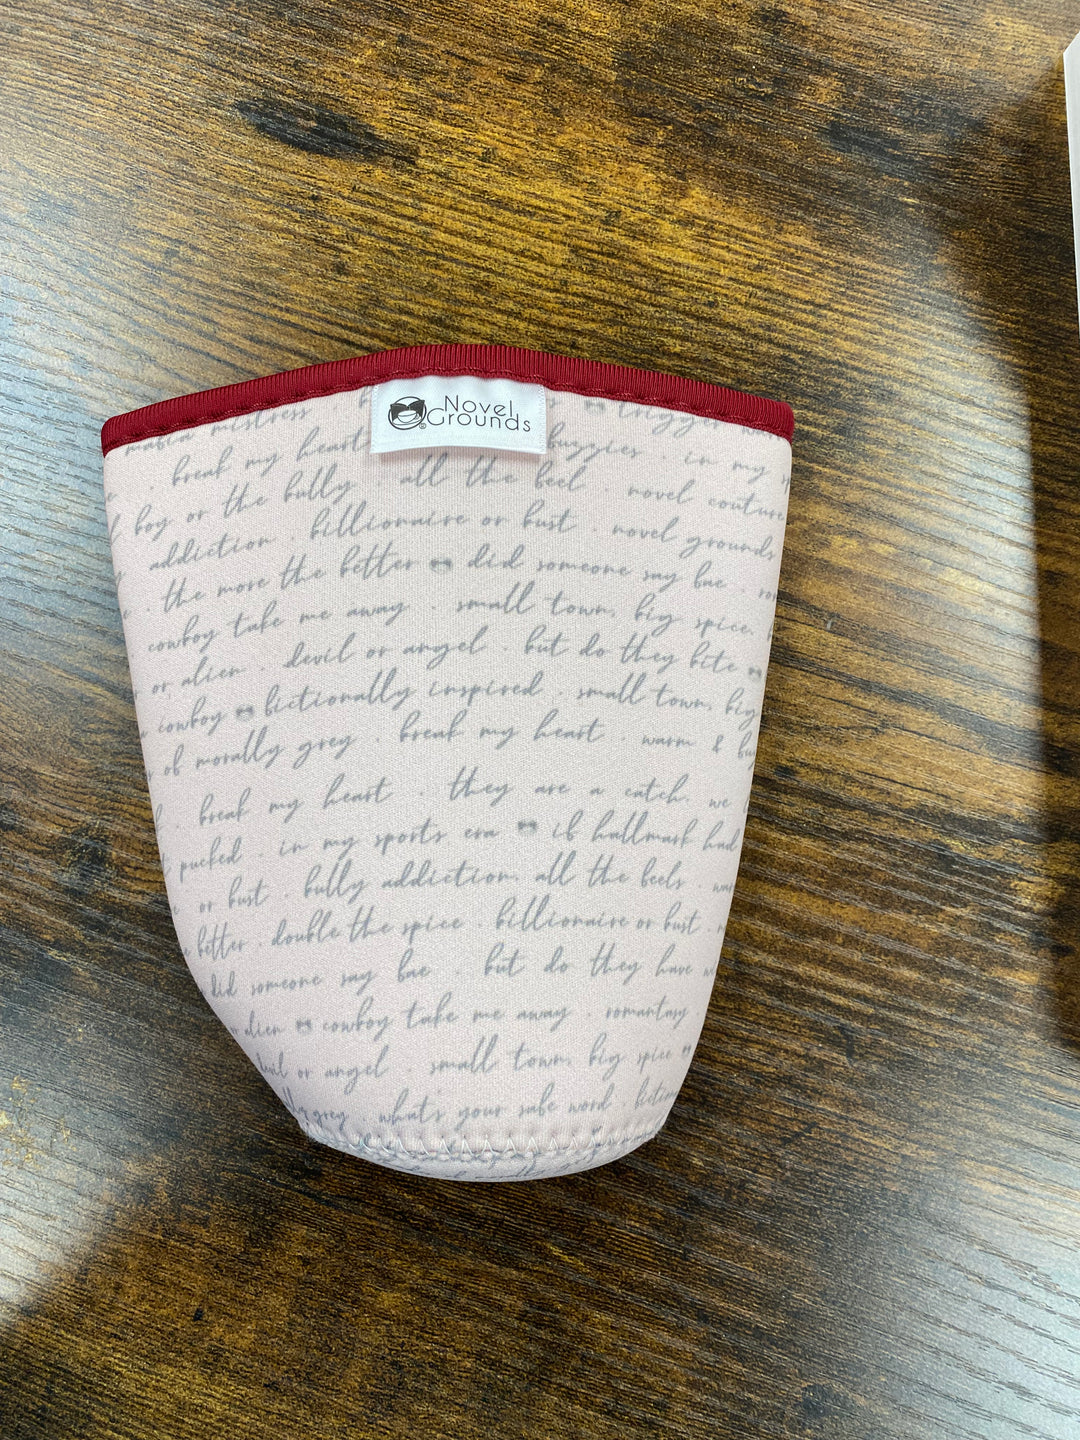 Novel
Grounds
mafia mistress . trigger
. break my heart fuzzies . in my
boy or the bully . all the feel . novel couture
addiction . billionaire or bust . novel grounds
. the more the better did someone say bae .
cowboy take me away . small town, big spice,
or alien . devil or angel . but do they bite
cowboy fictionally inspired . small town, big
of morally grey . break my heart . warm &
. break my heart . they are a catch, we
pucked . in my sports era if hallmark had
or bust . bully addiction, all the feels .
better . double the spice . billionaire or bust .
did someone say bae . but do they have
or alien cowboy take me away . romantasy .
devil or angel . small town, big spice
grey . what's your safe word .